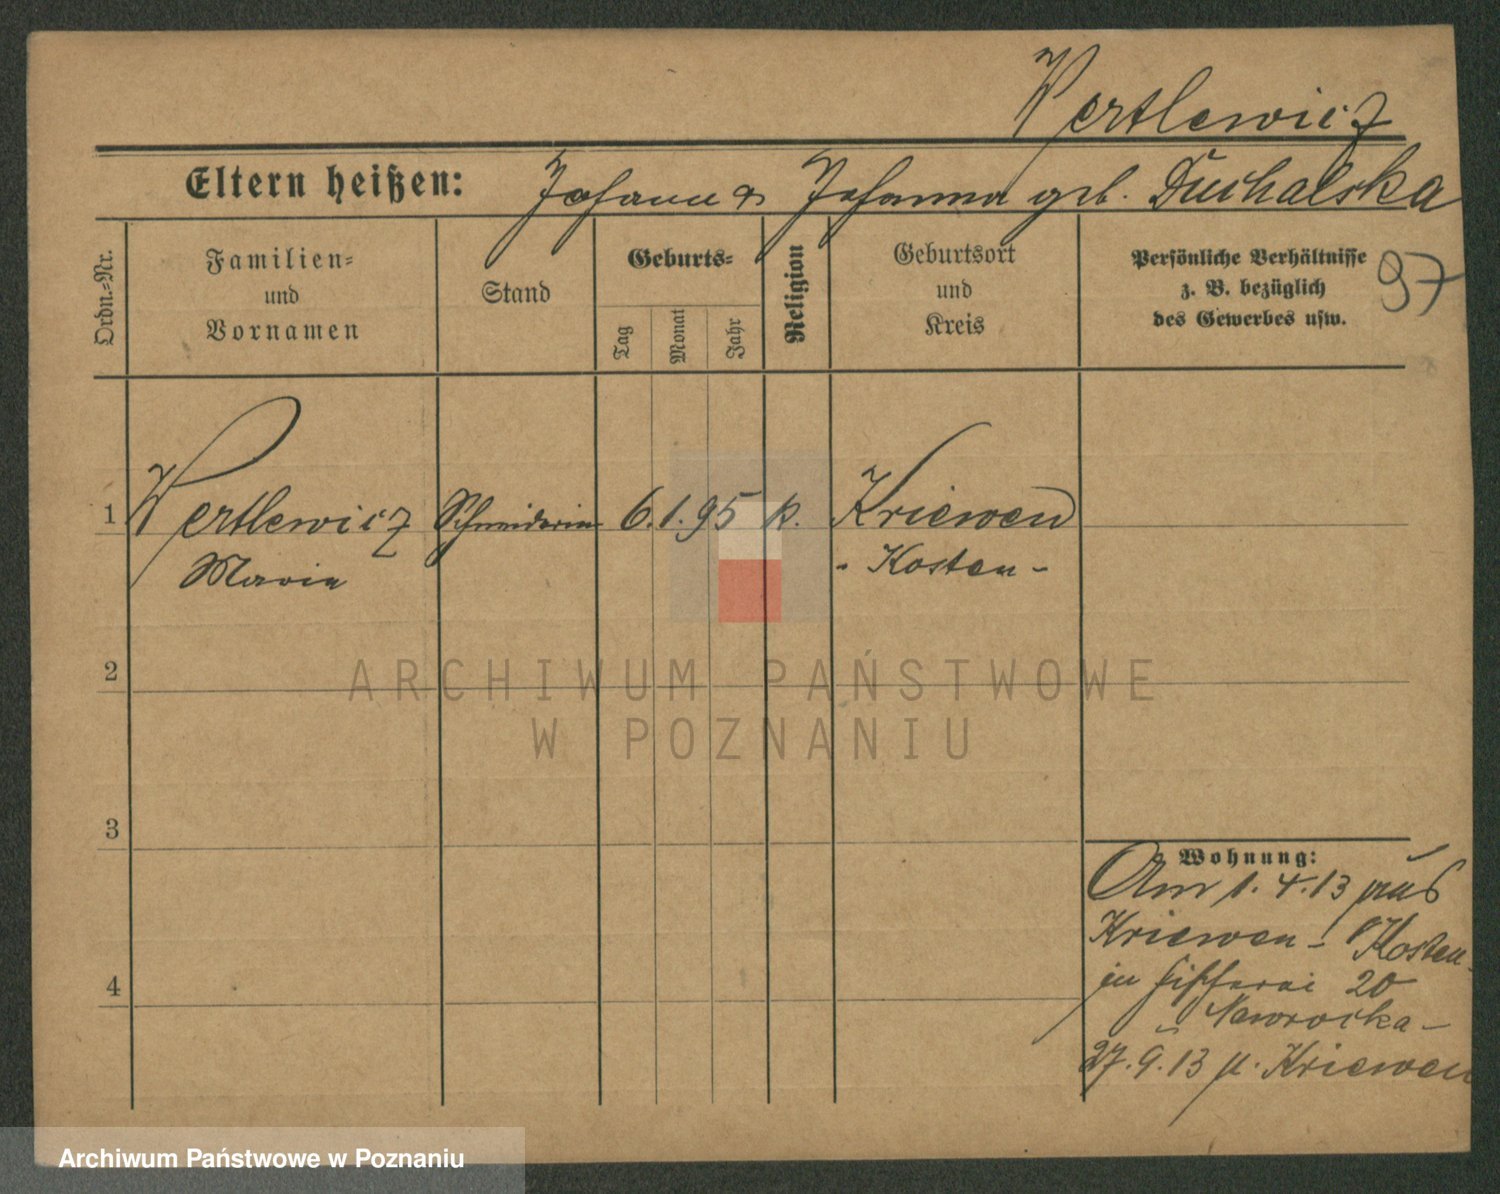 Wertlewicz
Eltern heißen: Johann & Johanna geb. Duchalska
Ordn.-Nr.
Familien-
und
Vornamen
Stand
Geburts-
Tag
Monat
Jahr
Religion
Geburtsort
und
Kreis
Persönliche Verhältnisse
z. B. bezüglich
des Gewerbes usw.
97
1 Wertlewicz Schneiderin 6. 1. 95 k. Kriewen
Maria - Kosten -
2
3
4
Wohnung:
Am 1. 4. 13 aus
Kriewen - Kosten -
in Fischerei 20
Nawrocka -
27. 9. 13 n. Kriewen
ARCHIWUM PAŃSTWOWE
W POZNANIU
Archiwum Państwowe w Poznaniu